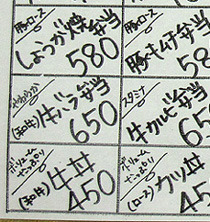 豚ロース
しょうが焼弁当
580
豚キムチ弁当
55
やわらか
(和牛)
牛バラ弁当
650
スタミナ
牛カルビ弁当
65
ボリューム
たっぷり
(和牛)
牛丼
450
ボリューム
たっぷり
(ロース)
カツ丼
45